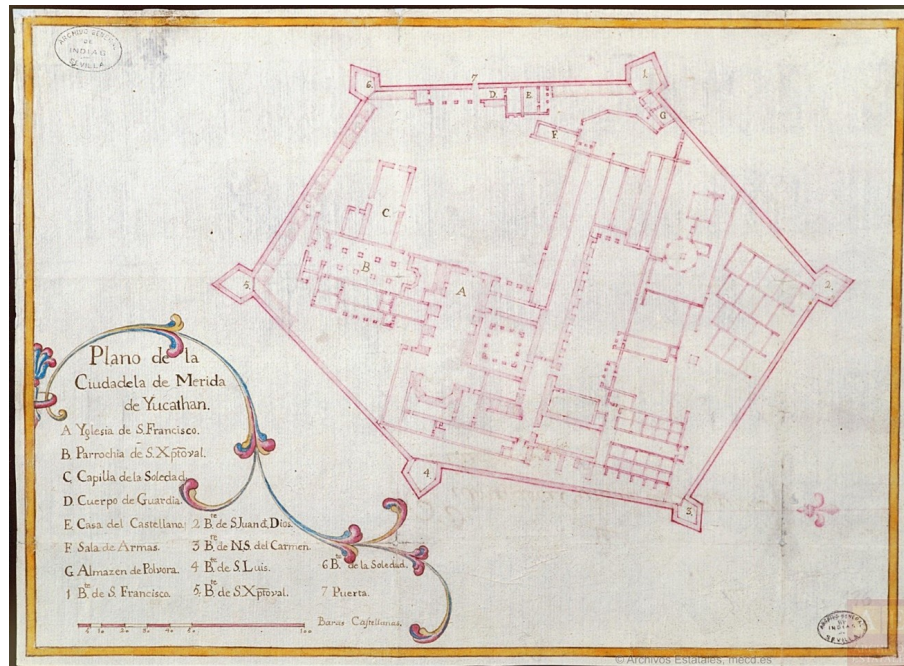 ARCHIVO GENERAL
DE
INDIAS
SEVILLA
7
6.
D.
E.
1.
G
F.
C.
B
A
5.
2.
4
3.
Plano de la
Ciudadela de Merida
de Yucathan.
A Yglesia de S. Francisco.
B Parrochia de S. Xptoval.
C Capilla de la Soledad.
D Cuerpo de Guardia.
E Casa del Castellano.
F Sala de Armas.
G Almazen de Polvora.
1 Bte. de S. Francisco.
2 Bte. de S. Juan d. Dios.
3 Bte. de N.S. del Carmen.
4 Bte. de S. Luis.
5. Bte. de S. Xptoval.
6 Bte. de la Soledad.
7 Puerta.
10 20 30 40 50 100 Baras Castellanas.
ARCHIVO GENERAL
DE
INDIAS
SEVILLA
© Archivos Estatales, mecd.es